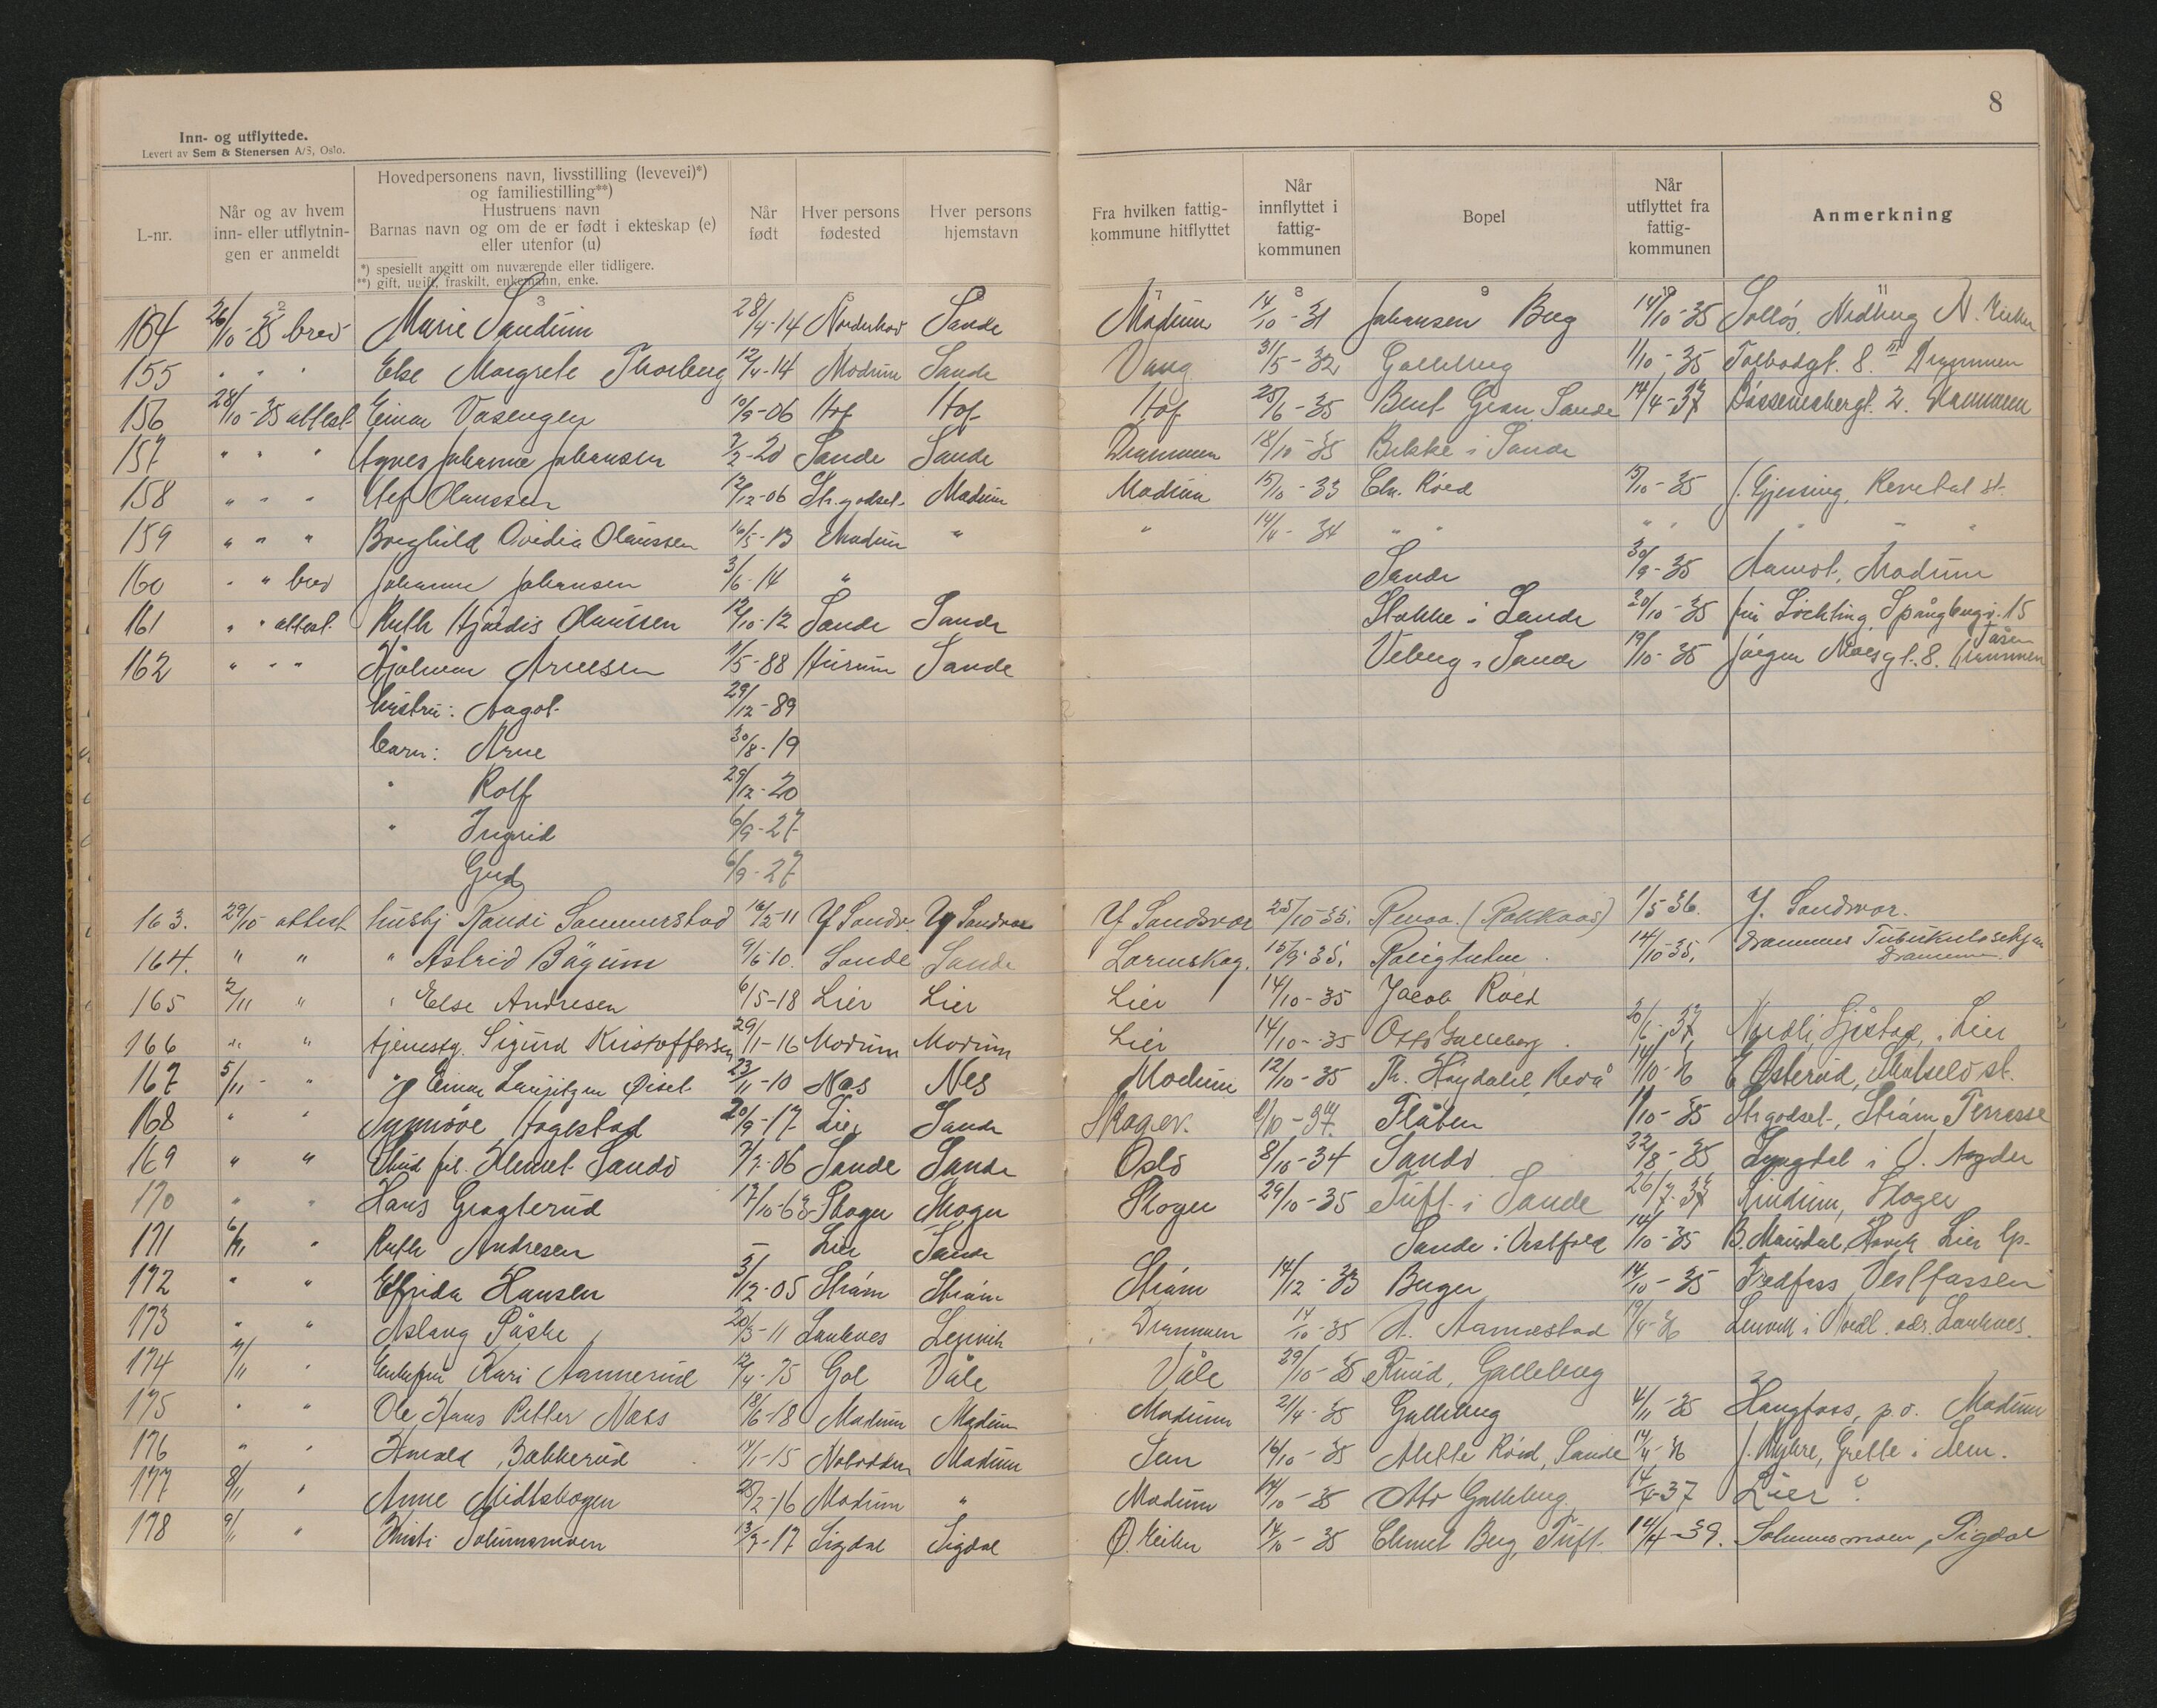 8
Inn- og utflyttede.
Levert av Sem & Stenersen A/S, Oslo.
L-nr.
Når og av hvem inn- eller utflytningen er anmeldt
Hovedpersonens navn, livsstilling (levevei)*) og familiestilling**)
Hustruens navn
Barnas navn og om de er født i ekteskap (e) eller utenfor (u)
*) spesiellt angitt om nuværende eller tidligere.
**) gift, ugift, fraskilt, enkemann, enke.
Når født
Hver persons fødested
Hver persons hjemstavn
Fra hvilken fattigkommune hitflyttet
Når innflyttet i fattigkommunen
Bopel
Når utflyttet fra fattigkommunen
Anmerkning
2 3 8 9 11
154 26/10-35 brev Marie Sandum 28/4-14 Norderhov Sande Modum 14/10-31 Johansen Berg 14/10-35 Solløs, Nedberg N. Eiker
155 " " " Else Margrete Thorberg 12/4-14 Modum Sande Vang 31/5-32 Galleberg 1/10-35 Tolbodgt. 8. III Drammen
156 28/10-35 attest Einar Vasengen 10/9-06 Hof Hof Hof 25/6-35 Bent Gran Sande 14/4-37 2. Drammen
157 " " " Agnes Johanne Johansen 2/2-20 Sande Sande Drammen 18/10-35 Bekke i Sande
158 " " " Olaussen 12/12-06 Str.godset Modum Modum 15/10-33 Chr. Røed 15/10-35 J. Gjessing, Revetal st.
159 " " " Borghild Ovidia Olaussen 16/5-13 Modum " " 14/4-34 " " " " " " "
160 " " brev Johanne Johansen 3/6-14 " Sande 30/9-35 Aamot, Modum
161 " " attest Ruth Hjørdis Olaussen 12/10-12 Sande Sande Stokke i Sande 20/10-35 fru Lochting, Spångbergv. 15 Tåsen
162 " " " Hjalmar Arnesen 11/5-88 Hurum Sande Veberg i Sande 19/10-35 Jørgen Moesgt. 8. Drammen
hustru: Aagot 29/12-89
barn: Arne 30/8-19
" Rolf 29/12-20
" Ingrid 6/9-27
Gud 6/9-27
163. 29/10 attest hushj Randi Sommerstad 16/2-11 Y Sandsv. Y Sandsvær Y Sandsvær 25/10-35. Revaa (Rakkaas) 1/5 36. Y. Sandsvær.
164. " " " Astrid Bågum 9/6-10. Sande Sande Lørenskog. 15/9-35. 14/10 35. Drammens Tuberkulosehjem Drammen
165 2/11 " " Else Andresen 6/5-18 Lier Lier Lier 14/10-35 Jacob Røed
166 " " tjenestg. Sigurd Kristoffersen 29/1-16 Modum Modum Lier 14/10-35 Otto Galleberg. 20/6-37 Nordli, Gjøstad, i Lier
167 5/11- " " Einar Lauritzen 23/11-10 Nes Nes Modum 12/10-35 Th. Høydahl, Revå 14/10-36 E. Østerud, st.
168 " " Synnøve Hogestad 20/9-17 Lier Sande Skoger. 1/10-34. Flåten 1/10-35 Str.godset, Strøm Terrasse
169 " " Stud. fil. Klemet Sandø 7/7-06 Sande Sande Oslo 8/10-34 Sandø 22/8-35 Lyngdal i V. Agder
170 " " Hans Grøgterud 17/10-63 Skoger Skoger Skoger 29/10-35 Tuft i Sande 26/7-37 Rindum, Skoger
171 6/11 " Ruth Andresen — Lier Sande Sande i Vestfold 14/10-35 B. Meirdal, Høvik Lier
172 " " Elfrida Hansen 3/12-05 Strøm Strøm Strøm 14/12-33 Berger 14/10-35 Fredfoss Vestfossen
173 " " Aslaug Påske 20/3-11 Lenvik Drammen 14/10-35 A. Aamestad 19/4-36 Lenvik i Nordl.
174 7/11 " Enkefru Kari Aannerud 12/4-75 Gol Våle Våle 29/10-35 Ruud, Galleberg
175 " " Ole Hans Petter Næss 18/6-18 Modum Modum Modum 21/4-35 Galleberg 4/11-35 Haugfoss, p.o. Modum
176 " " Harald Bakkerud 14/1-15 Notodden Modum Sem 16/10-35 Mette Røed, Sande 14/4-36 J. Myhre, Grette i Sem.
177 8/11 " Anne Midtskogen 28/2-16 Modum " Modum 14/10-35 Otto Galleberg 14/4-37 Lier?
178 9/11 " Kristi Solumsmoen 13/9-17 Sigdal Sigdal Ø. Eiker 14/10-35 Berg, Tuft. 14/4-39. Solumsmoen, Sigdal